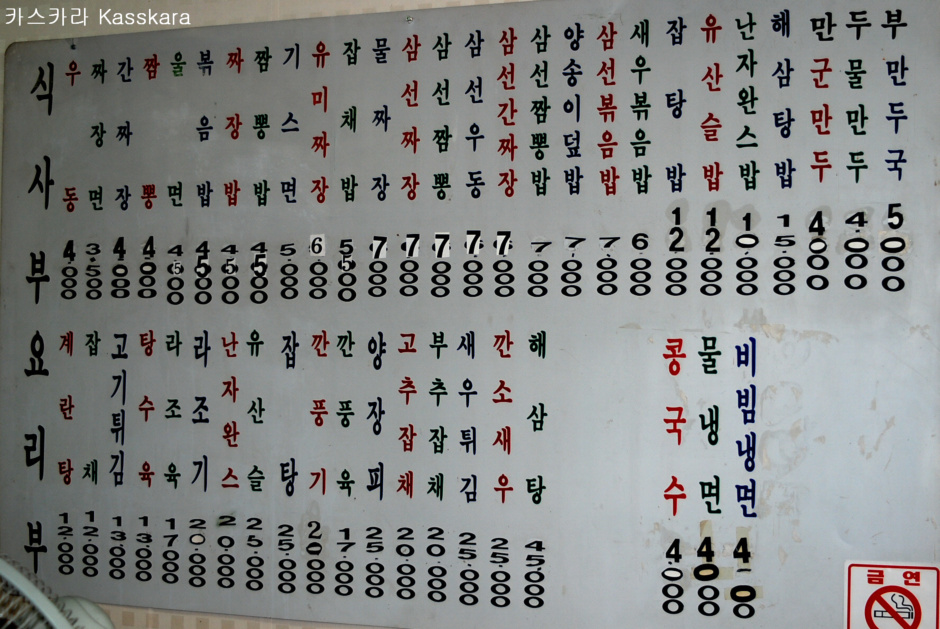 카스카라 Kasskara
식사부
우동 4000
짜장면 3500
간짜장 4000
짬뽕 4000
울면 4500
볶음밥 4500
짜장밥 4500
짬뽕밥 4500
기스면 5000
유미짜장 6000
잡채밥 5500
물짜장 7000
삼선짜장 7000
삼선짬뽕 7000
삼선우동 7000
삼선간짜장 7000
삼선짬뽕밥 7000
양송이덮밥 7000
삼선볶음밥 7000
새우볶음밥 6000
잡탕밥 12000
유산슬밥 12000
난자완스밥 10000
해삼탕밥 15000
만두부
군만두 4000
물만두 4000
만두국 5000
요리부
계란탕 12000
잡채 12000
고기튀김 13000
탕수육 13000
라조육 17000
라조기 20000
난자완스 20000
유산슬 25000
잡탕 25000
깐풍기 20000
깐풍육 17000
양장피 25000
고추잡채 20000
부추잡채 20000
새우튀김 25000
깐소새우 25000
해삼탕 45000
콩국수 4000
물냉면 4000
비빔냉면
금연